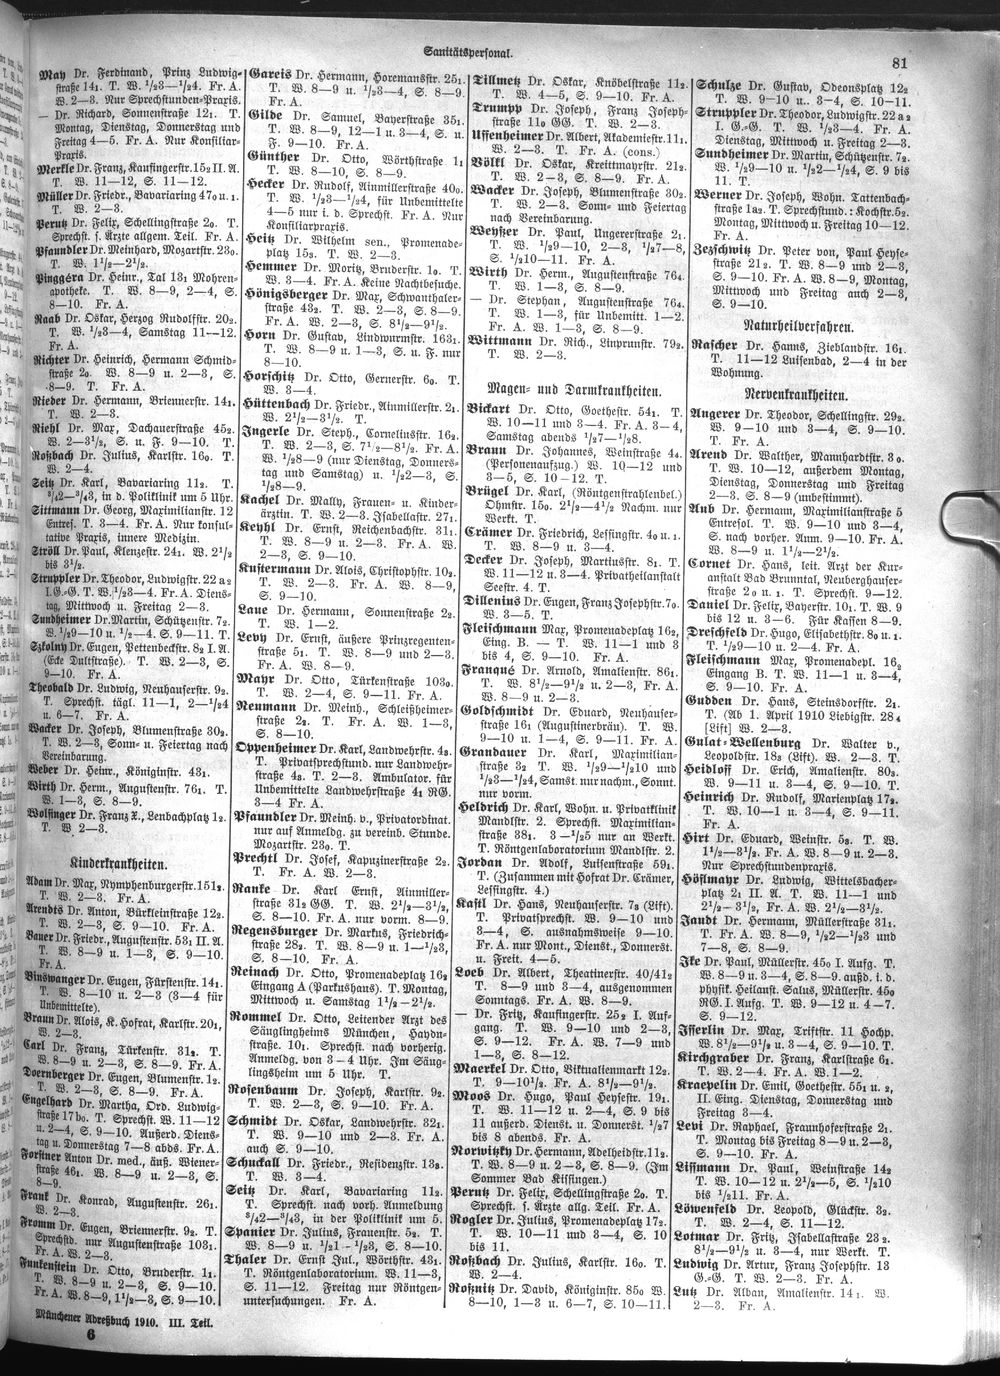 Sanitätspersonal.
81
May Dr. Ferdinand, Prinz Ludwig-
straße 14 1. T. W. 1/23—1/24. Fr. A.
W. 2—3. Nur Sprechstunden-Praxis.
— Dr. Richard, Sonnenstraße 12 1. T.
Montag, Dienstag, Donnerstag und
Freitag 4—5. Fr. A. Nur Konsiliar-
Praxis.
Merkle Dr. Franz, Kaufingerstr. 15 2 II. A.
T. W. 11—12, S. 11—12.
Müller Dr. Friedr., Bavariaring 47 0 u. 1.
T. W. 2—3.
Perutz Dr. Felix, Schellingstraße 2 0. T.
Sprechst. s. Ärzte allgem. Teil. Fr. A.
Pfaundler Dr. Meinhard, Mozartstr. 23 0.
T. W. 11/2—21/2.
Pinggéra Dr. Heinr., Tal 13 1 Mohren-
apotheke. T. W. 8—9, 2—4, S.
8—10. Fr. A.
Raab Dr. Oskar, Herzog Rudolfstr. 20 2.
T. W. 1/23—4, Samstag 11—12.
Fr. A.
Richter Dr. Heinrich, Hermann Schmid-
straße 2 0. W. 8—9 u. 2—3, S.
8—9. T. Fr. A.
Rieder Dr. Hermann, Briennerstr. 14 1.
T. W. 2—3.
Riehl Dr. Max, Dachauerstraße 45 2.
W. 2—31/2, S. u. F. 9—10. T.
Roßbach Dr. Julius, Karlstr. 16 0. T.
W. 2—4.
Seitz Dr. Karl, Bavariaring 11 2. T.
3/42—3/43, in d. Poliklinik um 5 Uhr.
Sittmann Dr. Georg, Maximilianstr. 12
Entres. T. 3—4. Fr. A. Nur konsul-
tative Praxis, innere Medizin.
Ströll Dr. Paul, Klenzestr. 24 1. W. 21/2
bis 31/2.
Struppler Dr. Theodor, Ludwigstr. 22 a 2
I. G.-G. T. W. 1/23—4. Fr. A. Diens-
tag, Mittwoch u. Freitag 2—3.
Sundheimer Dr. Martin, Schützenstr. 7 2.
W. 1/29—10 u. 1/2—4. S. 9—11. T.
Szkolny Dr. Eugen, Pettenbeckstr. 8 2 I. A.
(Ecke Dultstraße). T. W. 2—3, S.
9—10. Fr. A.
Theobald Dr. Ludwig, Neuhauserstr. 9 2.
T. Sprechst. tägl. 11—1, 2—1/24
u. 6—7. Fr. A.
Wacker Dr. Joseph, Blumenstraße 30 2.
T. W. 2—3, Sonn- u. Feiertag nach
Vereinbarung.
Weber Dr. Heinr., Königinstr. 43 1.
Wirth Dr. Herm., Augustenstr. 76 1. T.
W. 1—3, S. 8—9.
Wolfinger Dr. Franz X., Lenbachplatz 1 2.
T. W. 2—3.
Kinderkrankheiten.
Adam Dr. Max, Nymphenburgerstr. 151 2.
T. W. 2—3. Fr. A.
Arendts Dr. Anton, Bürkleinstraße 12 2.
T. W. 2—3, S. 9—10. Fr. A.
Bauer Dr. Friedr., Augustenstr. 53 1 II. A.
T. W. 8—9 u. 1—3, S. 9—10.
Fr. A.
Binswanger Dr. Eugen, Fürstenstr. 14 1.
T. W. 8—10 u. 2—3 (3—4 für
Unbemittelte).
Braun Dr. Alois, K. Hofrat, Karlstr. 20 1,
W. 2—3.
Carl Dr. Franz, Türkenstr. 31 2. T.
W. 8—9 u. 2—3, S. 8—9. Fr. A.
Doernberger Dr. Eugen, Blumenstr. 1 2.
T. W. 2—3, S. 8—9. Fr. A.
Engelhard Dr. Martha, Ord. Ludwig-
straße 17 b 0. T. Sprechst. W. 11—12
u. 2—4, S. 9—10. Außerd. Diens-
tag u. Donnerstag 7—8 abds. Fr. A.
Forstner Anton Dr. med., äuß. Wiener-
straße 46 1. W. 8—9 u. 2—3, S.
8—9.
Frank Dr. Konrad, Augustenstr. 26 1.
W. 2—3.
Fromm Dr. Eugen, Briennerstr. 9 2. T.
Sprechstd. nur Augustenstraße 103 1.
Fr. A. W. 2—3.
Funkenstein Dr. Otto, Bruderstr. 1 1.
T. W. 8—9 u. 2—3, S. 9—10.
Fr. A. W. 8—9, 11/2—3, S. 9—10.
Münchener Adreßbuch 1910. III. Teil.
6
Gareis Dr. Hermann, Horemansstr. 25 1.
T. W. 8—9 u. 1/23—4, S. 8—9.
Fr. A.
Gilde Dr. Samuel, Bayerstraße 35 1.
T. W. 8—9, 12—1 u. 3—4, S. u.
F. 9—10. Fr. A.
Günther Dr. Otto, Wörthstraße 1 1
T. W. 8—10, S. 8—9.
Hecker Dr. Rudolf, Ainmillerstraße 40 0.
T. W. 1/23—1/24, für Unbemittelte
4—5 nur i. d. Sprechst. Fr. A. Nur
Konsiliarpraxis.
Heitz Dr. Wilhelm sen., Promenade-
platz 15 3. T. W. 2—3.
Hemmer Dr. Moritz, Bruderstr. 1 0. T.
W. 3—4. Fr. A. Keine Nachtbesuche.
Hönigsberger Dr. Max, Schwanthaler-
straße 43 2. T. W. 2—3, S. 8—9.
Fr. A. W. 2—3, S. 81/2—91/2.
Horn Dr. Gustav, Lindwurmstr. 163 1.
T. W. 8—9 u. 1—3, S. u. F. nur
8—10.
Horschitz Dr. Otto, Gernerstr. 6 0. T.
W. 3—4.
Hüttenbach Dr. Friedr., Ainmillerstr. 2 1.
W. 21/2—31/2. T.
Ingerle Dr. Steph., Cornelinsstr. 16 2.
T. W. 2—3, S. 71/2—81/2. Fr. A.
W. 1/28—9 (nur Dienstag, Donners-
tag und Samstag) u. 1/22—3, S.
1/28—9.
Kachel Dr. Mally, Frauen- u. Kinder-
ärztin. T. W. 2—3. Isabellastr. 27 1.
Keyhl Dr. Ernst, Reichenbachstr. 31 1.
T. W. 8—9 u. 2—3. Fr. A. W.
2—3, S. 9—10.
Kustermann Dr. Alois, Christophstr. 10 2.
T. W. 2—3. Fr. A. W. 8—9,
S. 9—10.
Laue Dr. Hermann, Sonnenstraße 2 2.
T. W. 1—2.
Levy Dr. Ernst, äußere Prinzregenten-
straße 5 1. T. W. 8—9 und 2—3.
Fr. A. W. 8—9.
Mayr Dr. Otto, Türkenstraße 103 0.
T. W. 2—4, S. 9—11. Fr. A.
Neumann Dr. Meinh., Schleißheimer-
straße 2 2. T. Fr. A. W. 1—3,
S. 8—10.
Oppenheimer Dr. Karl, Landwehrstr. 4 3.
T. Privatsprechstund. nur Landwehr-
straße 4 3. T. 2—3. Ambulator. für
Unbemittelte Landwehrstraße 4 1 RG.
3—4 Fr. A.
Pfaundler Dr. Meinh. v., Privatordinat.
nur auf Anmeldg. zu vereinb. Stunde.
Mozartstr. 23 0. T.
Prechtl Dr. Josef, Kapuzinerstraße 2 2.
T. Fr. A. W. 2—3.
Ranke Dr. Karl Ernst, Ainmiller-
straße 31 2 GG. T. W. 21/2—31/2,
S. 8—10. Fr. A. nur vorm. 8—9.
Regensburger Dr. Markus, Friedrich-
straße 28 2. T. W. 8—9 u. 1—1/23,
S. 8—10. Fr. A.
Reinach Dr. Otto, Promenadeplatz 16 2
Eingang A (Parkushaus). T. Montag,
Mittwoch u. Samstag 11/2—21/2.
Rommel Dr. Otto, Leitender Arzt des
Säuglingheims München, Haydn-
straße. 10 1. Sprechst. nach vorherig.
Anmeldg. von 3—4 Uhr. Im Säug-
lingsheim um 5 Uhr. T.
Rosenbaum Dr. Joseph, Karlstr. 9 2.
T. W. 2—3, S. 9—10. Fr. A.
Schmidt Dr. Oskar, Landwehrstr. 32 1.
T. W. 9—10 und 2—3. Fr. A.
auch S. 9—10.
Schuckall Dr. Friedr., Residenzstr. 13 2.
T. W. 3—4.
Seitz Dr. Karl, Bavariaring 11 2.
T. Sprechst. nach vorh. Anmeldung
3/42—3/43, in der Poliklinik um 5.
Spanier Dr. Julius, Frauenstr. 5 2. T.
W. 8—9 u. 1/21—1/23, S. 8—10.
Thaler Dr. Ernst Jul., Wörthstr. 43 1.
T. Röntgenlaboratorium. W. 11—3,
S. 11—12. Freitag nur Röntgen-
untersuchungen. Fr. A.
Tillmetz Dr. Oskar, Knöbelstraße 11 2.
T. W. 4—5, S. 9—10. Fr. A.
Trumpp Dr. Joseph, Franz Joseph-
straße 11 0 GG. T. W. 2—3.
Uffenheimer Dr. Albert, Akademiestr. 11 1.
W. 2—3. T. Fr. A. (cons.)
Völkl Dr. Oskar, Kreittmayrstr. 21 2.
T. W. 2—3, S. 8—9. Fr. A.
Wacker Dr. Joseph, Blumenstraße 30 2.
T. W. 2—3. Sonn- und Feiertag
nach Vereinbarung.
Weyßer Dr. Paul, Ungererstraße 2 1.
T. W. 1/29—10, 2—3, 1/27—8,
S. 1/210—11. Fr. A.
Wirth Dr. Herm., Augustenstraße 76 4.
T. W. 1—3, S. 8—9.
— Dr. Stephan, Augustenstraße 76 4.
T. W. 1—3, für Unbemitt. 1—2.
Fr. A. W. 1—3, S. 8—9.
Wittmann Dr. Rich., Linprunstr. 79 2.
T. W. 2—3.
Magen- und Darmkrankheiten.
Bickart Dr. Otto, Goethestr. 54 1. T.
W. 10—11 und 3—4. Fr. A. 3—4,
Samstag abends 1/27—1/28.
Braun Dr. Johannes, Weinstraße 4 4.
(Personenaufzug.) W. 10—12 und
3—5, S. 10—12. T.
Brügel Dr. Karl, (Röntgenstrahlenbel.)
Ohmstr. 15 0. 21/2—41/2 Nachm. nur
Werkt. T.
Crämer Dr. Friedrich, Lessingstr. 4 0 u. 1.
T. W. 8—9 u. 3—4.
Decker Dr. Joseph, Martiusstr. 8 1. T.
W. 11—12 u. 3—4. Privatheilanstalt
Seestr. 4. T.
Dillenius Dr. Eugen, Franz Josephstr. 7 0.
W. 3—5. T.
Fleischmann Max, Promenadeplatz 16 2,
Eing. B. — T. W. 11—1 und 3
bis 4, S. 9—10. Fr. A.
Franqué Dr. Arnold, Amalienstr. 86 1.
T. W. 81/2—91/2 u. 2—3, Fr. A.
W. 8—9 u. 2—3.
Goldschmidt Dr. Eduard, Neuhauser-
straße 16 1 (Augustinerbräu). T. W.
9—10 u. 1—4, S. 9—11. Fr. A.
Grandauer Dr. Karl, Maximilian-
straße 3 2 T. W. 1/29—1/210 und
1/23—1/24, Samst. nur nachm., Sonnt.
nur vorm.
Heldrich Dr. Karl, Wohn. u. Privatklinik
Mandlstr. 2. Sprechst. Maximilian-
straße 38 1. 3—1/25 nur an Werkt.
T. Röntgenlaboratorium Mandlstr. 2.
Jordan Dr. Adolf, Luisenstraße 59 1.
T. (Zusammen mit Hofrat Dr. Crämer,
Lessingstr. 4.)
Kastl Dr. Hans, Neuhauserstr. 7 3 (Lift).
T. Privatsprechst. W. 9—10 und
3—4, S. ausnahmsweise 9—10.
Fr. A. nur Mont., Dienst., Donnerst.
u. Freit. 4—5.
Loeb Dr. Albert, Theatinerstr. 40/41 2
T. 8—9 und 3—4, ausgenommen
Sonntags. Fr. A. W. 8—9.
— Dr. Fritz, Kaufingerstr. 25 2 I. Auf-
gang. T. W. 9—10 und 2—3,
S. 9—12. Fr. A. W. 7—9 und
1—3, S. 8—12.
Maerkel Dr. Otto, Viktualienmarkt 12 2.
T. 9—101/2. Fr. A. 81/2—91/2.
Moos Dr. Hugo, Paul Heysestr. 19 1.
T. W. 11—12 u. 2—4, S. 9 bis
11 außerd. Dienst. u. Donnerst. 1/27
bis 8 abends. Fr. A.
Norwitzky Dr. Hermann, Adelheidstr. 11 2.
T. W. 8—9 u. 2—3, S. 8—9. (Im
Sommer Bad Kissingen.)
Perutz Dr. Felix, Schellingstraße 2 0. T.
Sprechst. s. Ärzte allg. Teil. Fr. A.
Rogler Dr. Julius, Promenadeplatz 17 2.
T. W. 10—11 und 3—4, S. 10
bis 11.
Roßbach Dr. Julius, Karlstr. 16 0. T.
W. 2—4.
Roßnitz Dr. David, Königinstr. 85 0 W.
8—10, 1—3 u. 6—7, S. 10—11.
Schulze Dr. Gustav, Odeonsplatz 12 2
T. W. 9—10 u. 3—4, S. 10—11.
Struppler Dr. Theodor, Ludwigstr. 22 a 2
I. G.-G. T. W. 1/23—4. Fr. A.
Dienstag, Mittwoch u. Freitag 2—3.
Sundheimer Dr. Martin, Schützenstr. 7 2.
W. 1/29—10 u. 1/22—1/24, S. 9 bis
11. T.
Werner Dr. Joseph, Wohn. Tattenbach-
straße 1 a 2. T. Sprechstund.: Kochstr. 5 2.
Montag, Mittwoch u. Freitag 10—12.
Fr. A.
Zezschwitz Dr. Peter von, Paul Heyse-
straße 21 2. T. W. 8—9 und 2—3,
S. 9—10. Fr. A. W. 8—9, Montag,
Mittwoch und Freitag auch 2—3,
S. 9—10.
Naturheilverfahren.
Rascher Dr. Hanns, Zieblandstr. 16 1.
T. 11—12 Luisenbad, 2—4 in der
Wohnung.
Nervenkrankheiten.
Angerer Dr. Theodor, Schellingstr. 29 2.
W. 9—10 und 3—4, S. 9—10.
T. Fr. A.
Arend Dr. Walther, Mannhardtstr. 3 0.
T. W. 10—12, außerdem Montag,
Dienstag, Donnerstag und Freitag
2—3. S. 8—9 (unbestimmt).
Aub Dr. Hermann, Maximilianstraße 5
Entresol. T. W. 9—10 und 3—4,
S. nach vorher. Anm. 9—10. Fr. A.
W. 8—9 u. 11/2—21/2.
Cornet Dr. Hans, leit. Arzt der Kur-
anstalt Bad Brunntal, Neuberghauser-
straße 2 0 u. 1. T. Sprechst. 9—12.
Daniel Dr. Felix, Bayerstr. 10 1. T. W. 9
bis 12 u. 3—6. Für Kassen 8—9.
Dreschfeld Dr. Hugo, Elisabethstr. 8 0 u. 1.
T. 1/29—10 u. 2—4. Fr. A.
Fleischmann Max, Promenadepl. 16 2
Eingang B. T. W. 11—1 u. 3—4,
S. 9—10. Fr. A.
Gudden Dr. Hans, Steinsdorfstr. 2 1.
T. (Ab 1. April 1910 Liebigstr. 28 4
[Lift] W. 2—3.
Gulat-Wellenburg Dr. Walter v.,
Leopoldstr. 18 3 (Lift). W. 2—3. T.
Heidloff Dr. Erich, Amalienstr. 80 3.
W. 9—11 u. 3—4, S. 9—10. T.
Heinrich Dr. Rudolf, Marienplatz 17 2.
T. W. 10—1 u. 3—4, S. 9—11.
Fr. A.
Hirt Dr. Eduard, Weinstr. 5 3. T. W.
11/2—31/2. Fr. A. W. 8—9 u. 2—3.
Nur Sprechstundenpraxis.
Höflmayr Dr. Ludwig, Wittelsbacher-
platz 2 1 II. A. T. W. 11—1 und
21/2—31/2, Fr. A. W. 21/2—31/2.
Jandt Dr. Hermann, Müllerstraße 31 1.
T. Fr. A. W. 8—9, 1/22—1/23 und
7—8, S. 8—9.
Jke Dr. Paul, Müllerstr. 45 0 I. Aufg. T.
W. 8—9 u. 3—4, S. 8—9. außd. i. d.
physik. Heilanst. Salus, Müllerstr. 45 0
RG. I. Aufg. T. W. 9—12 u. 4—7.
S. 9—12.
Isserlin Dr. Max, Triftstr. 11 Hochp.
W. 81/2—91/2 u. 3—4, S. 9—10. T.
Kirchgraber Dr. Franz, Karlstraße 6 1.
T. W. 2—4. Fr. A. W. 1—2.
Kraepelin Dr. Emil, Goethestr. 55 1 u. 2,
II. Eing. Dienstag, Donnerstag und
Freitag 3—4.
Levi Dr. Raphael, Fraunhoferstraße 2 1.
T. Montag bis Freitag 8—9 u. 2—3,
S. 9—10. Fr. A.
Lißmann Dr. Paul, Weinstraße 14 2
T. W. 10—12 u. 21/2—5, S. 1/210
bis 1/211. Fr. A.
Löwenfeld Dr. Leopold, Glückstr. 3 2.
T. W. 2—4, S. 11—12.
Lotmar Dr. Fritz, Isabellastraße 23 2.
81/2—91/2 u. 3—4, nur Werkt. T.
Ludwig Dr. Artur, Franz Josephstr. 13
G.-G. T. W. 2—3. Fr. A.
Lutz Dr. Alban, Amalienstr. 14 1. W.
2—3. Fr. A.